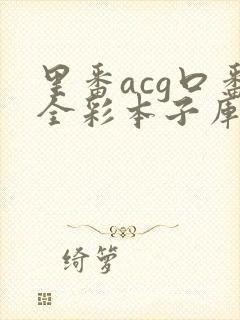 里番acg口番
全彩本子库
绮萝